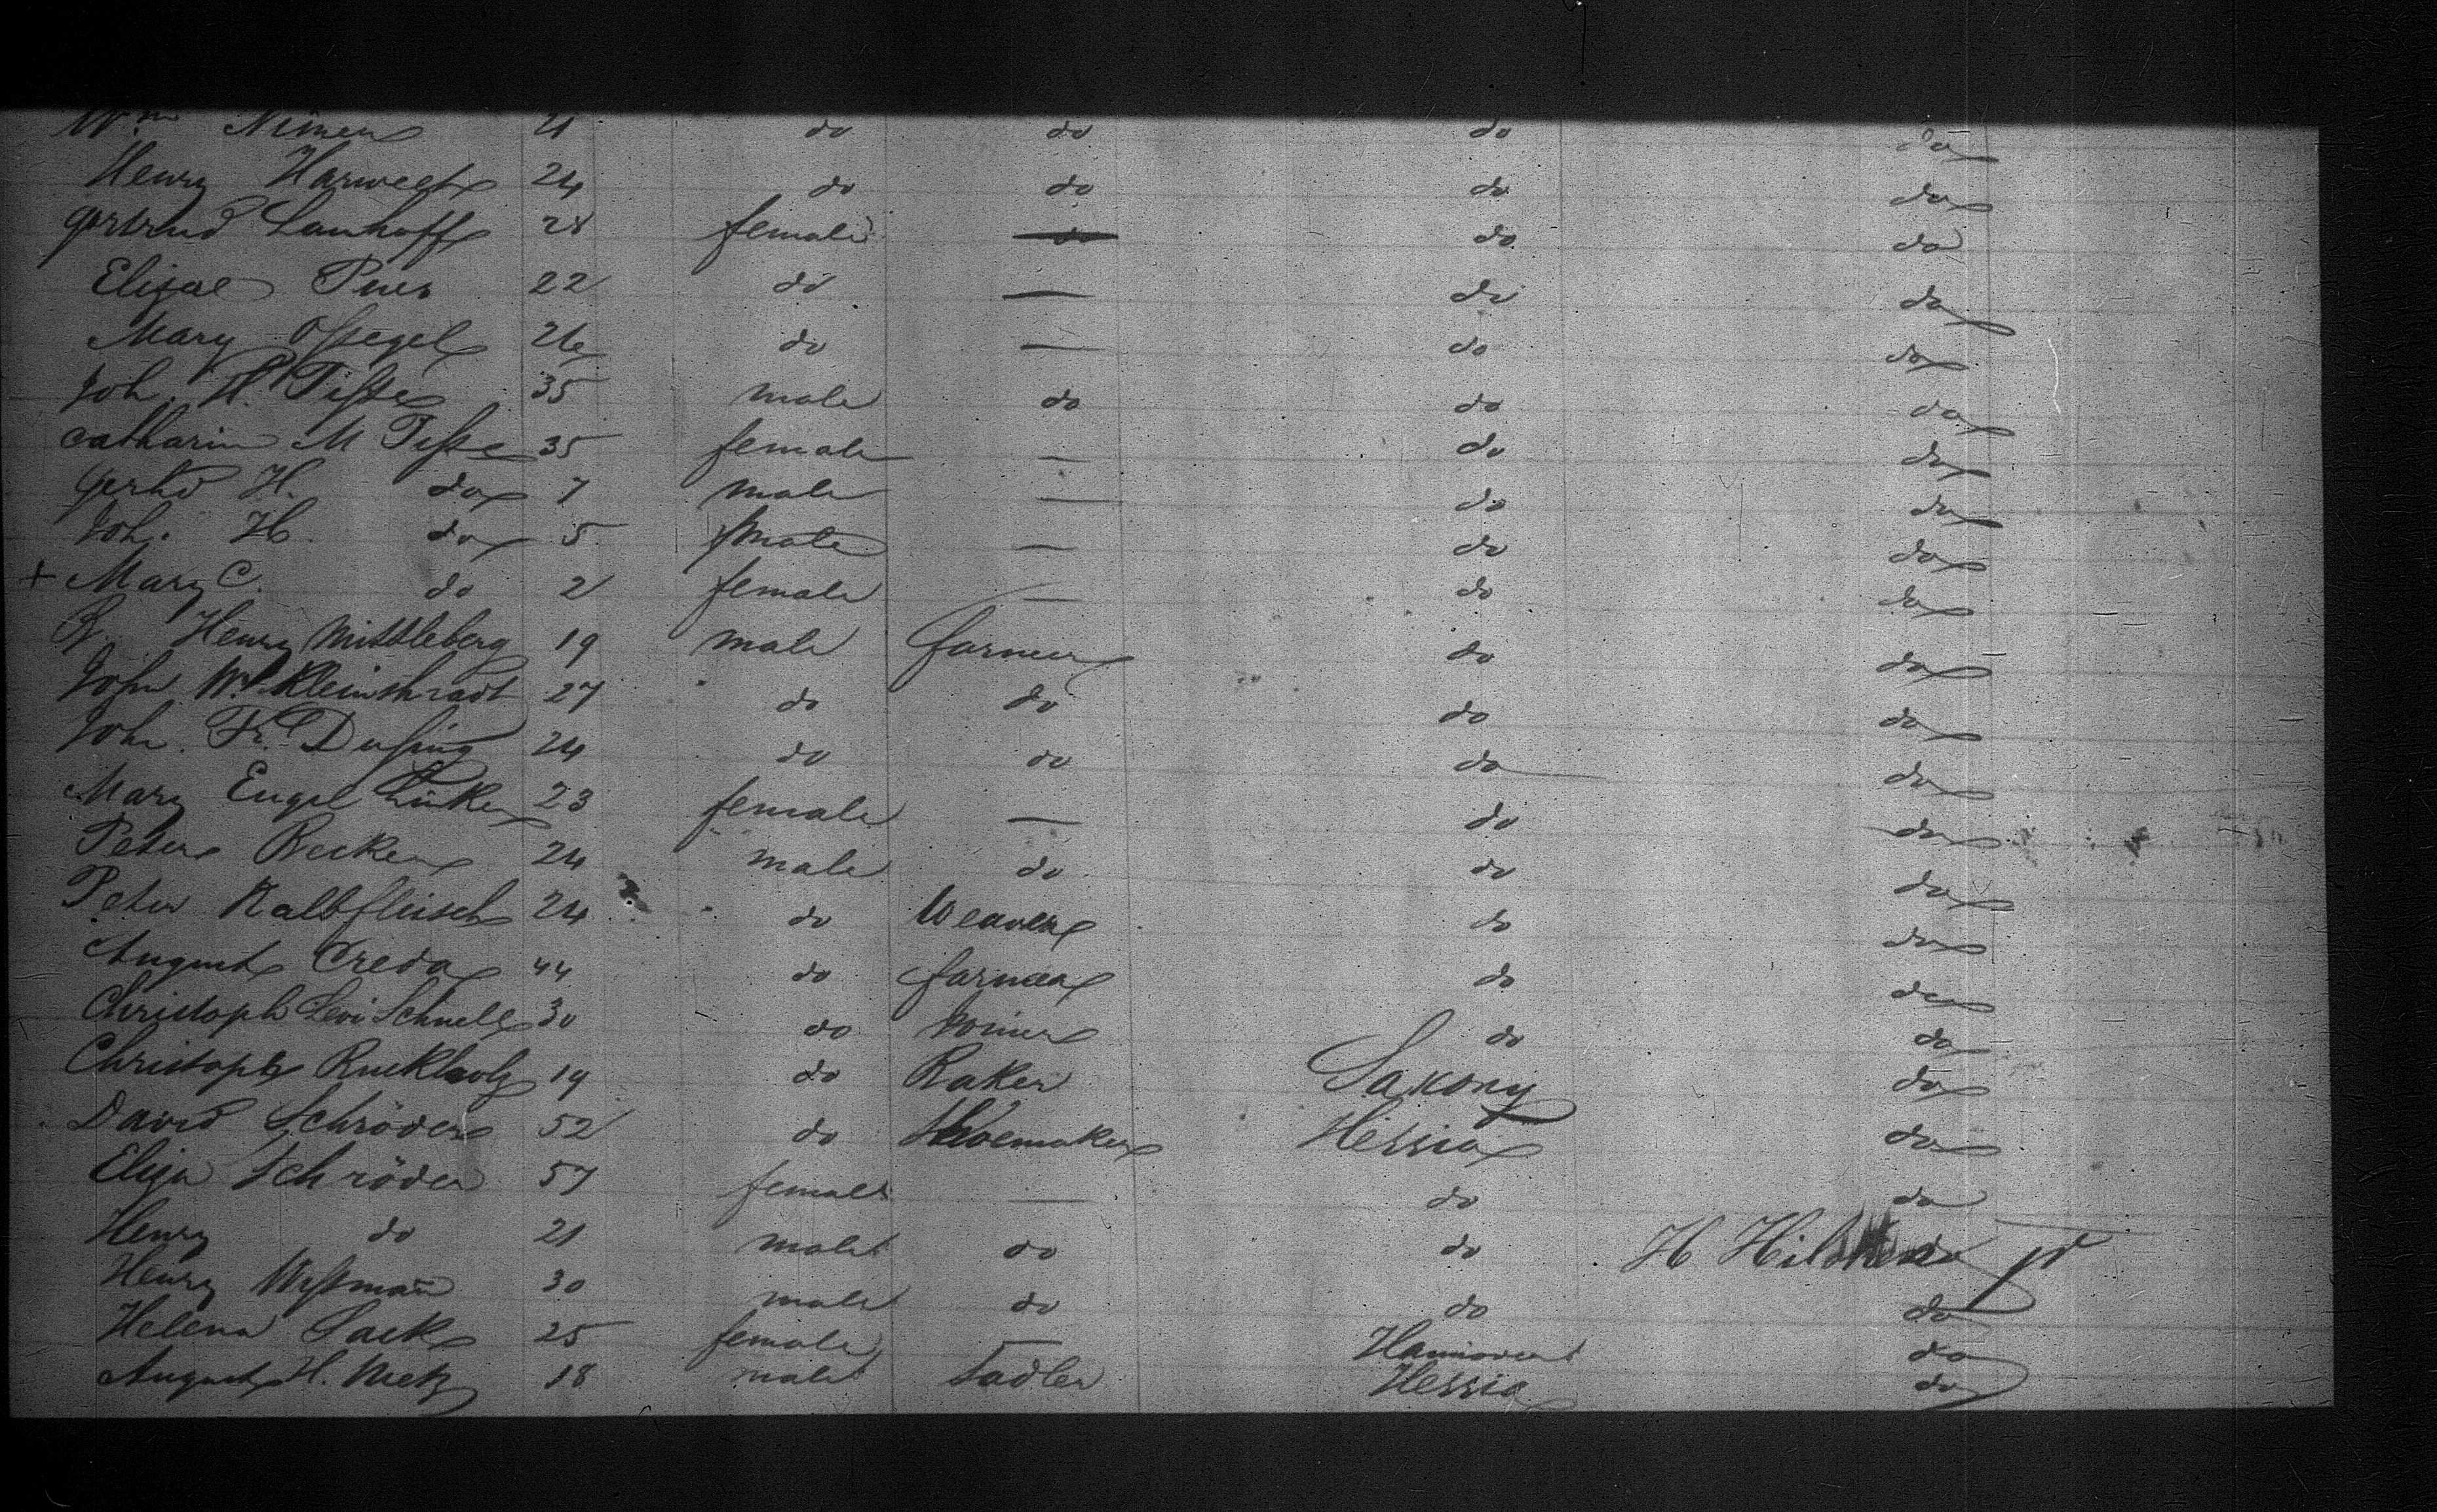 Wm Nimen 21 do do do do
Henry Harweg 24 do do do do
gertrud Lanhoff 28 female do do
Elisae 22 do — do do
Mary 26 do — do do
Joh. H. Tiſke 35 male do do do
catharin M Tiſke 35 female — do do
gerhd H. do 7 male — do do
Joh. H. do 5 male — do do
+ Mary C. do 2 female — do do
Henry Mittleberg 19 male farmer do do
John Wl. Kleinschradt 27 do do do do
Joh. Fr. Duſing 24 do do do do
Mary Engel Lüke 23 female — do do
Peter Becker 24 male do do do
Peter Kalbfleisch 24 do Weaver do do
August Creda 44 do farmer do do
Christoph Levi Schnell 30 do Joiner do do
Christoph Ruckholz 19 do Baker Saxony do
David Schröder 52 do Shoemaker Hessia do
Eliza Schröder 57 female — do do
Henry do 21 male do do H do
Henry Weſsman̄ 30 male do do do
Helena Sack 25 female — Hannover do
August H. Metz 18 male Sadler Hessia do